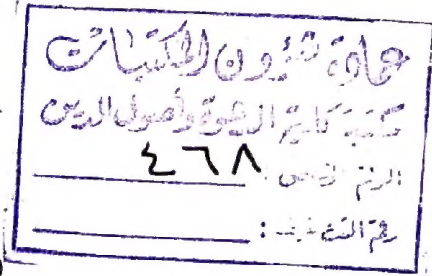 عمادة شؤون المكتبات
مكتبة كلية الدعوة وأصول الدين
الرقم العام ٤٦٨
رقم التصنيف :